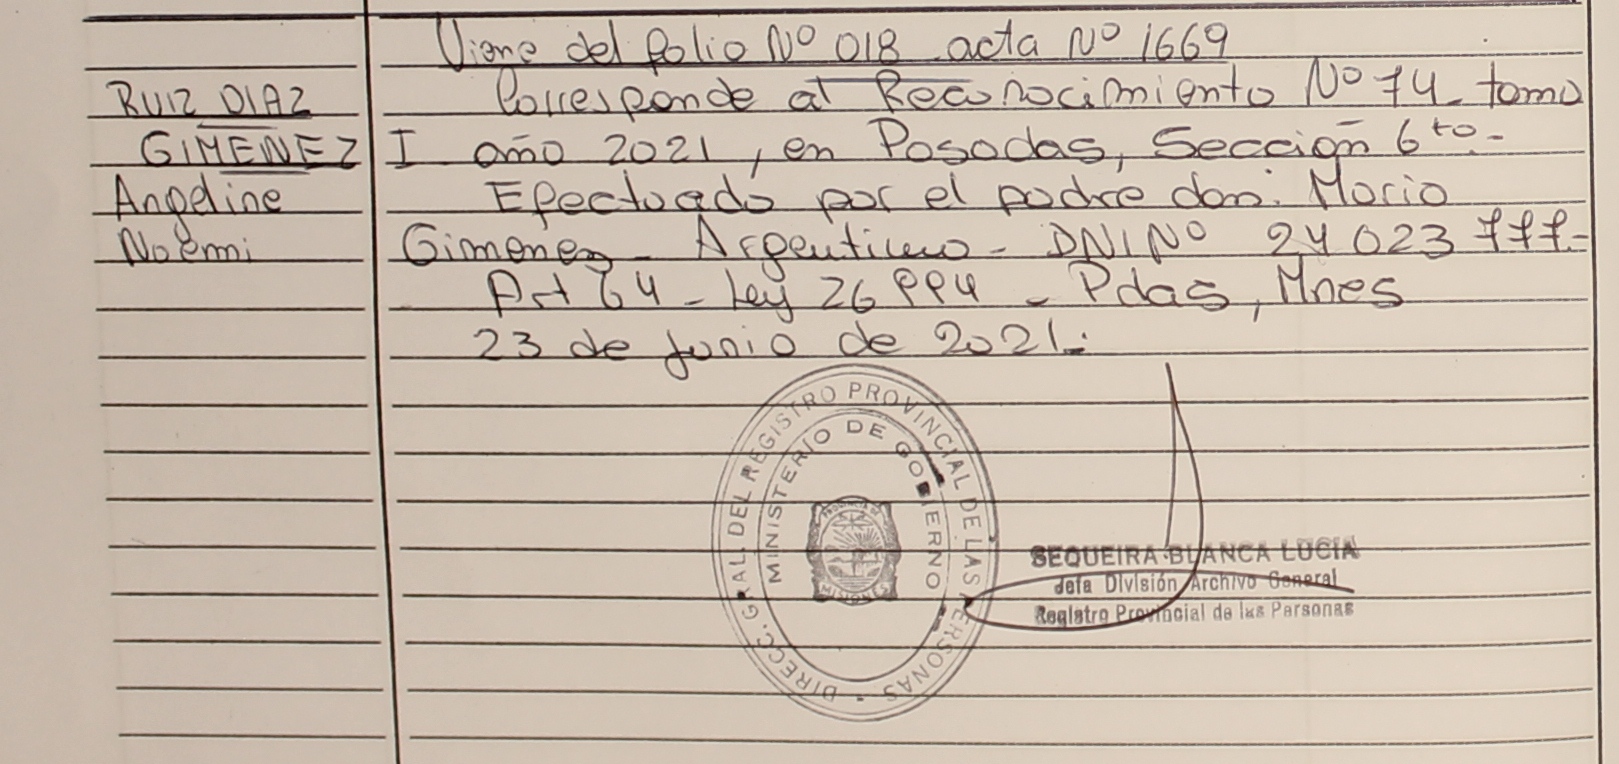 Viene del folio Nº 018 acta Nº 1669
RUIZ DIAZ
GIMENEZ
Angeline
Noemi
Corresponde al Reconocimiento Nº 74 - tomo
I año 2021, en Posadas, Sección 6to.-
Efectuado por el padre don: Mario
Gimenez - Argentino - DNI Nº 24 023 777.-
Art 64 - Ley 26 994 - Pdas, Mnes
23 de junio de 2021.-
DIRECC. GRAL. DEL REGISTRO PROVINCIAL DE LAS PERSONAS
MINISTERIO DE GOBIERNO
SEQUEIRA BLANCA LUCIA
Jefa División Archivo General
Registro Provincial de las Personas